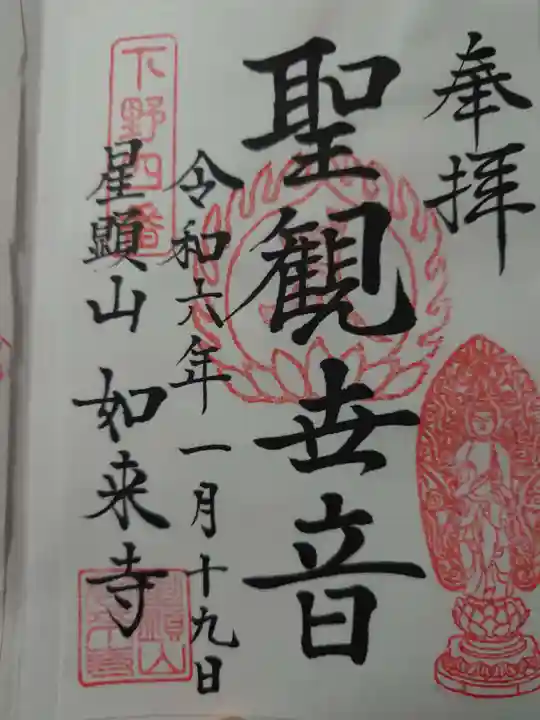 奉拝
聖観世音
令和六年一月十九日
下野四番
星顕山 如来寺